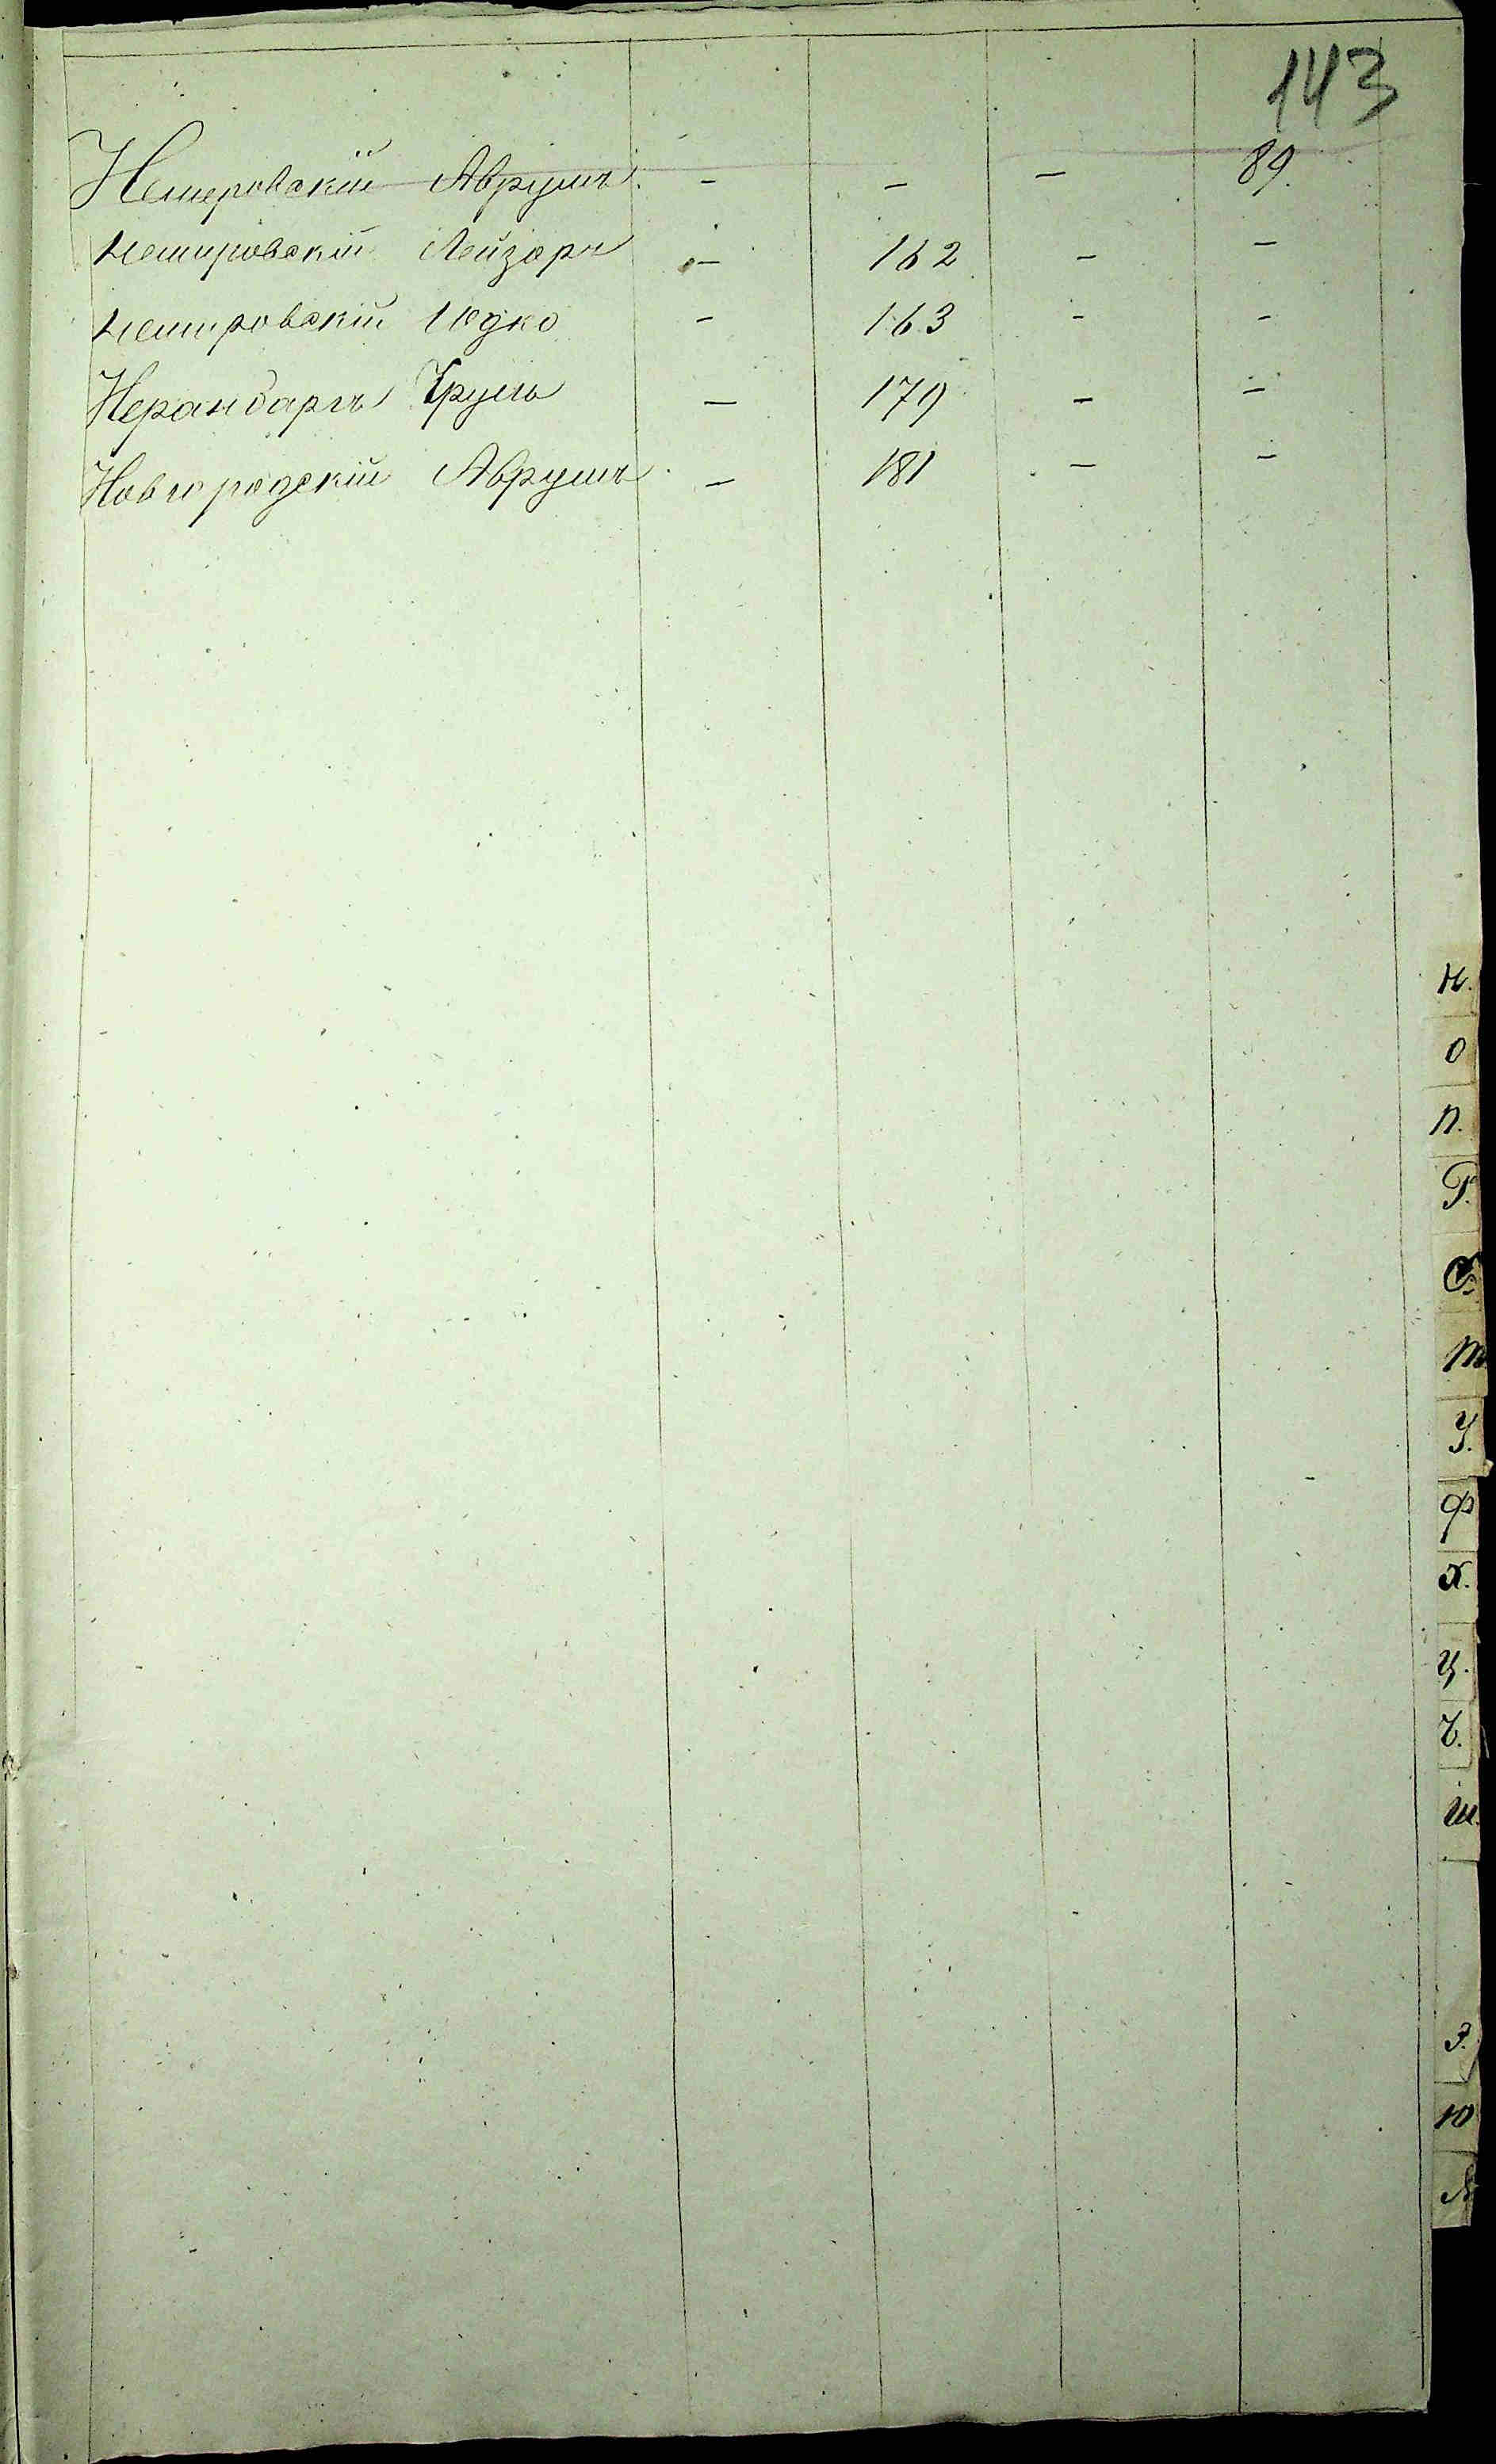 143
Немеровскій Аврумъ - - - 89.
Немировскій Лейзоръ - 162 - -
Немировскій Юдко - 163 - -
Сруль - 179 - -
Новгородскій Аврумъ - 181 - -
Н.
О
П.
Р.
С.
Т
У.
Ф
Х.
Ц.
Ч.
Ш.
Э.
Ю
Я